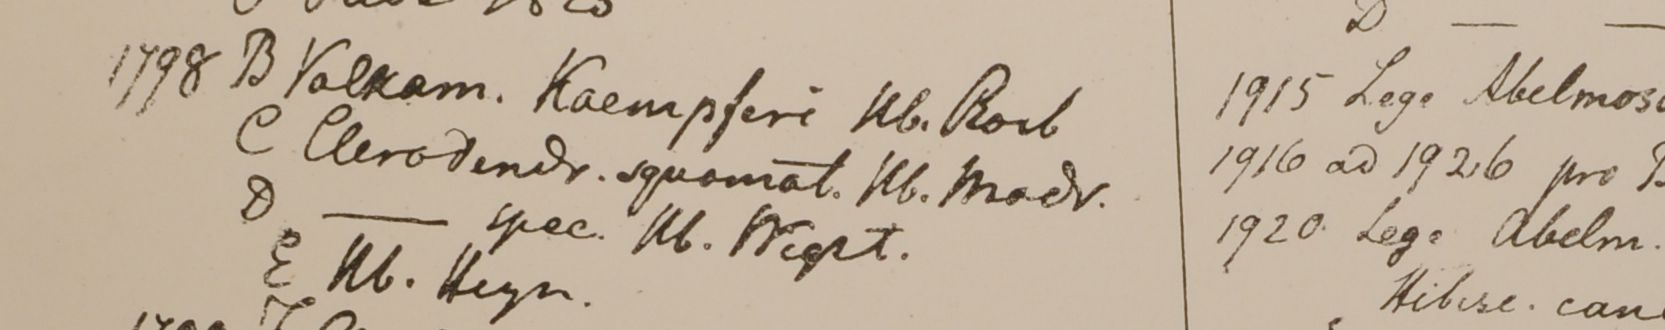 1798 B Volkam. Kaempferi Hb. Roxb
C Clerodendr. squamat. Hb. Madr.
D —— spec. Hb. Wight.
E Hb. Heyn.
D — —
1915 Lege Abelmosc
1916 ad 1926 pro
1920 Lege Abelm.
Hibisc. can